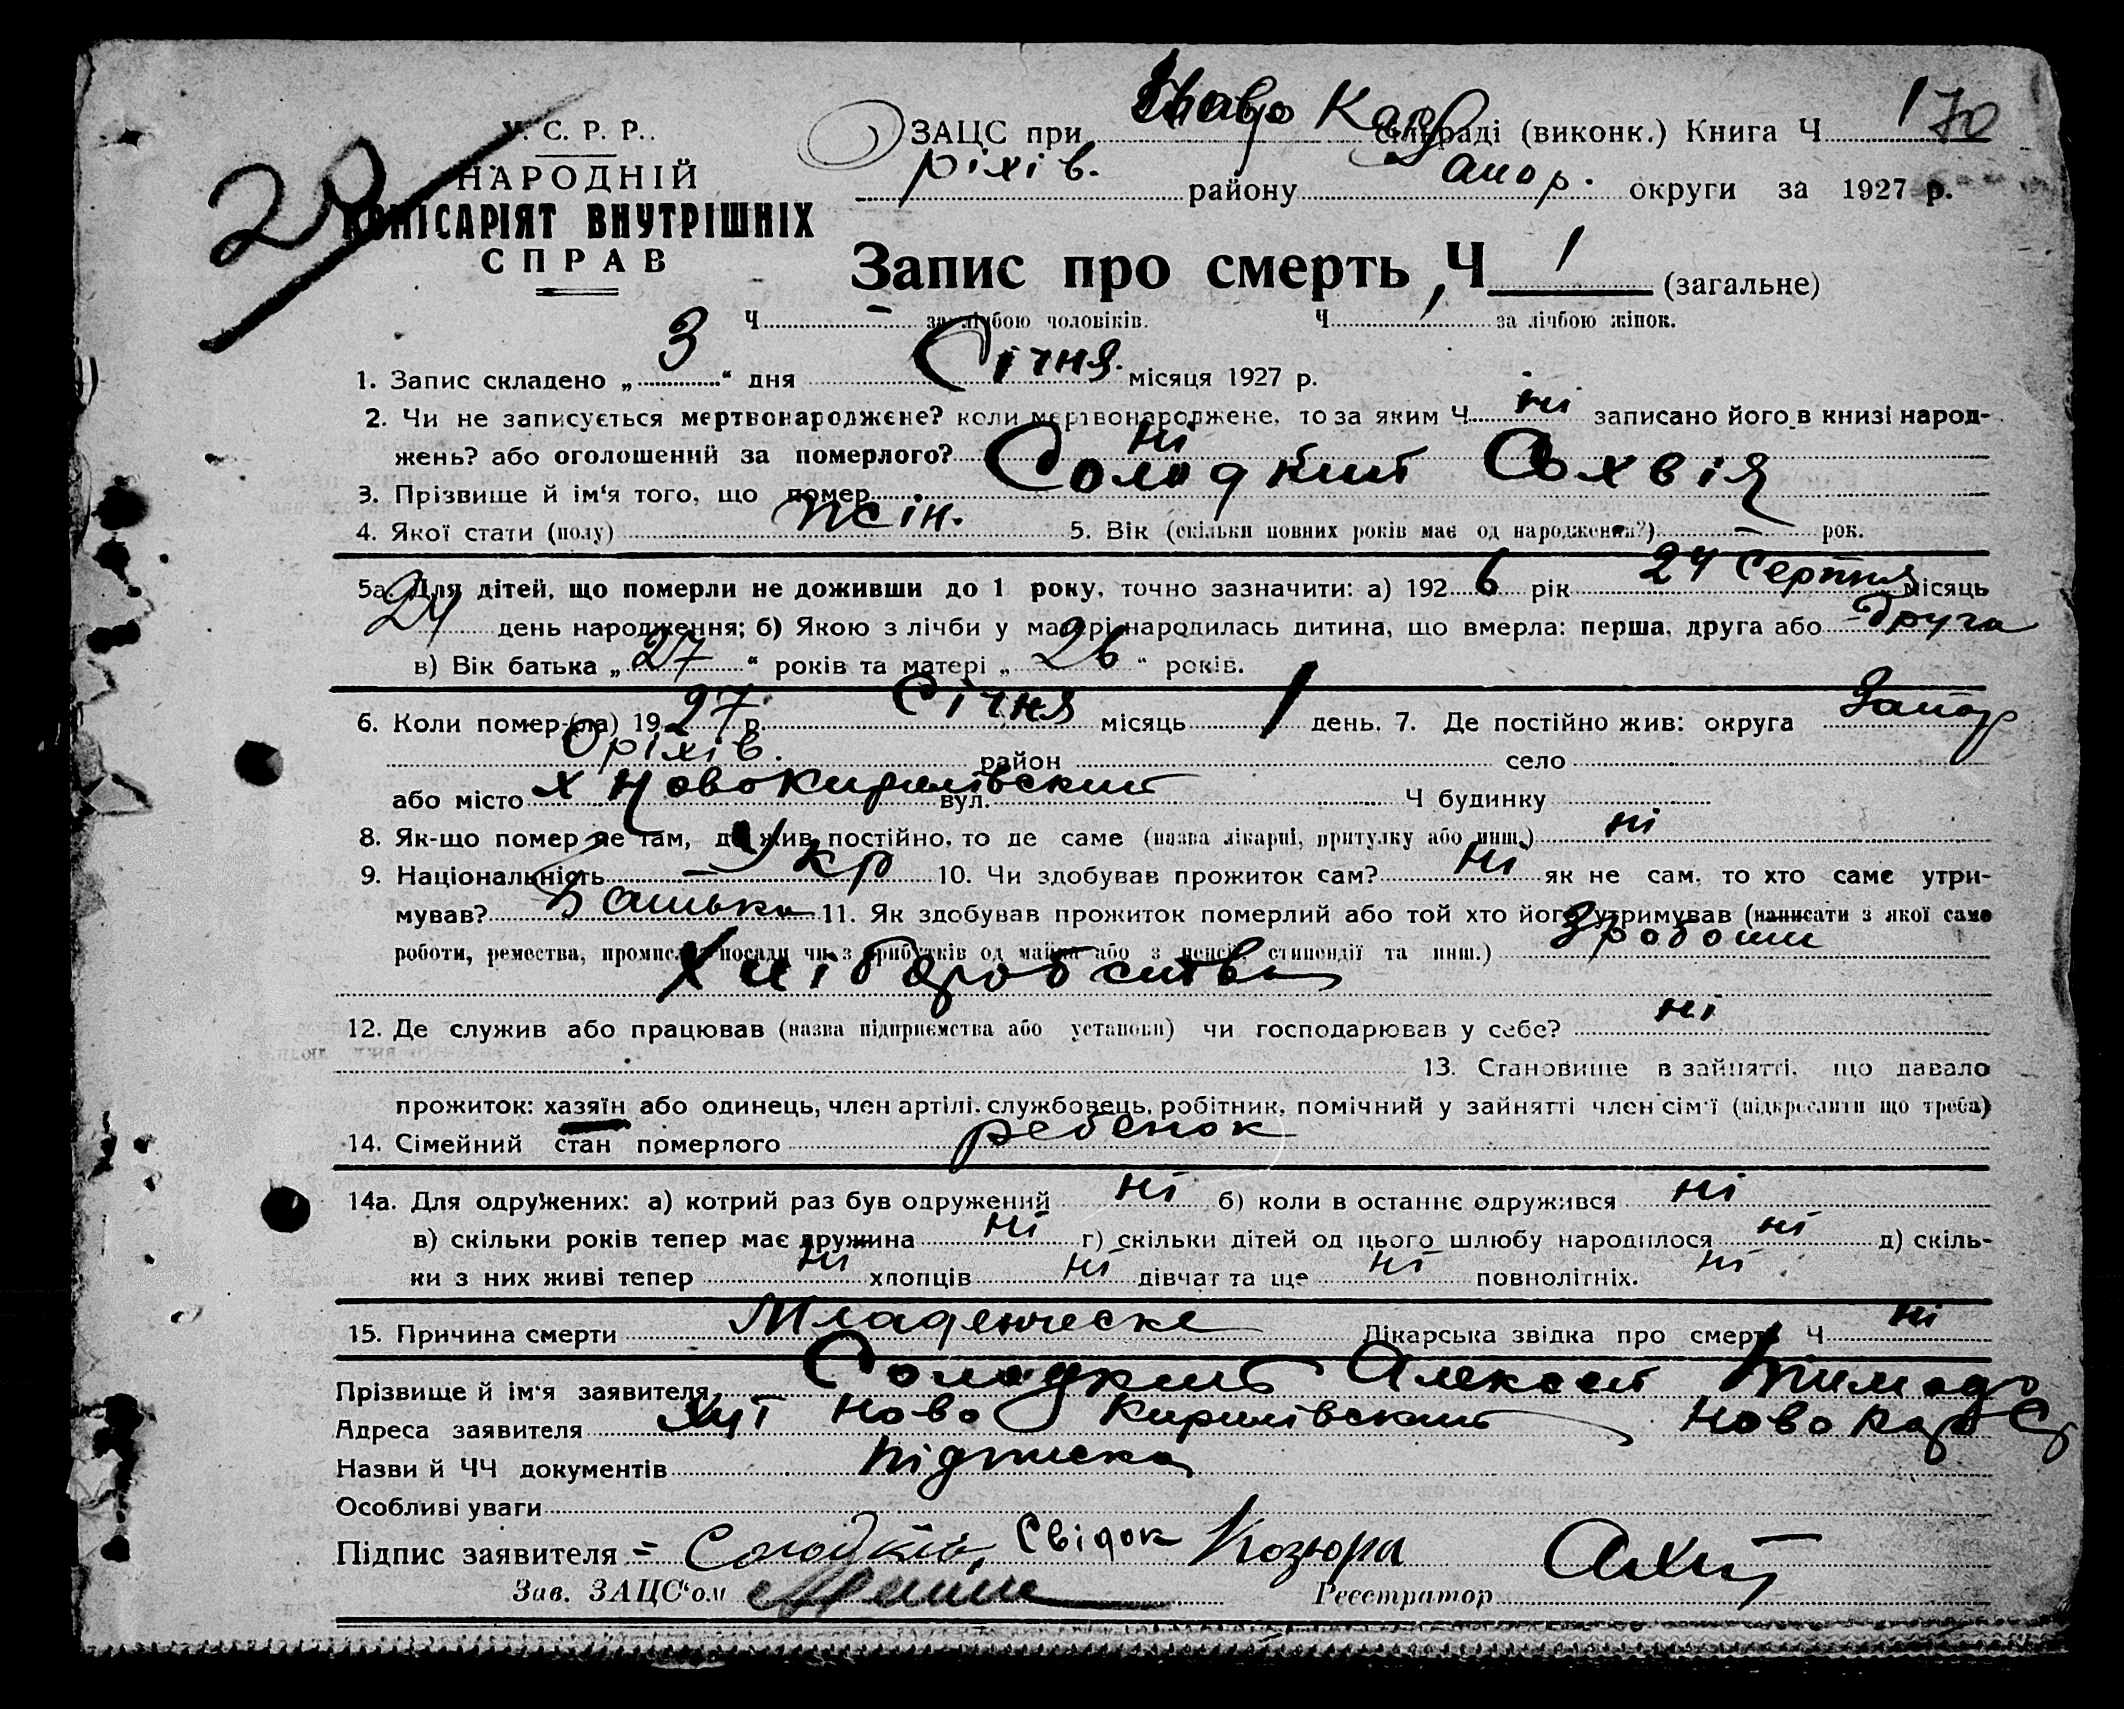 У. С. Р. Р.
НАРОДНІЙ
КОМІСАРІЯТ ВНУТРІШНІХ
СПРАВ
ЗАЦС при Ново Кар Сільраді (виконк.) Книга Ч 170
ріхів. району Запор. округи за 1927 р.
Запис про смерть Ч 1 (загальне)
Ч – за лічбою чоловіків. Ч 1 за лічбою жінок.
1. Запис складено „ 3 “ дня Січня місяця 1927 р.
2. Чи не записується мертвонароджене? коли мертвонароджене, то за яким Ч ні записано його в книзі народ-
жень? або оголошений за померлого? ні
3. Прізвище й ім‘я того, що помер Солодкий Сохвія
4. Якої стати (полу) жін. 5. Вік (скільки повних років має од народження?) – рок.
5а. Для дітей, що померли не доживши до 1 року, точно зазначити: а) 192 6 рік 24 Серпня місяць
24 день народження; б) Якою з лічби у матері народилась дитина, що вмерла: перша, друга або друга
в) Вік батька „ 27 “ років та матері „ 26 “ років.
6. Коли помер-(ла) 19 27 р. Січня місяць 1 день. 7. Де постійно жив: округа Запор
Оріхів. район село
або місто х Новокирилівский вул. Ч будинку
8. Як-що помер не там, де жив постійно, то де саме (назва лікарні, притулку або инш.) ні
9. Національність Укр 10. Чи здобував прожиток сам? ні як не сам, то хто саме утри-
мував? Батько 11. Як здобував прожиток померлий або той хто його утримував (написати з якої саме
роботи, ремества, промислу, посади чи з прибутків од майна або з пенсії, стипендії та инш.) З роботи
Хліборобства
12. Де служив або працював (назва підприємства або установи) чи господарював у себе? ні
13. Становище в зайнятті, що давало
прожиток: хазяїн або одинець, член артілі, службовець, робітник, помічний у зайнятті член сім‘ї (підкреслити що треба)
14. Сімейний стан померлого ребенок
14а. Для одружених: а) котрий раз був одружений ні б) коли в останнє одружився ні
в) скільки років тепер має дружина ні г) скільки дітей од цього шлюбу народилося ні д) скіль-
ки з них живі тепер ні хлопців ні дівчат та ще ні повнолітніх. ні
15. Причина смерти Младенческе Лікарська звідка про смерть Ч ні
Прізвище й ім‘я заявителя Солодкий Алексей Тимоф
Адреса заявителя Хут Ново Кирилівский Ново Кар
Назви й ЧЧ документів підписка
Особливі уваги
Підпис заявителя Солодкий, Свідок Козюра
Зав. ЗАЦС‘ом Реєстратор